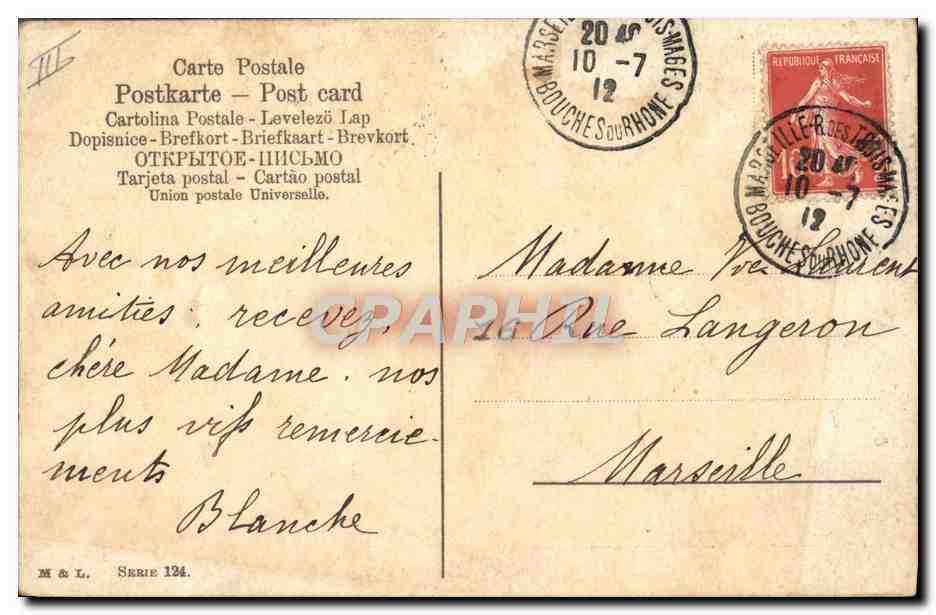 III
Carte Postale
Postkarte — Post card
Cartolina Postale - Levelezö Lap
Dopisnice - Brefkort - Briefkaart - Brevkort
ОТКРЫТОЕ-ПИСЬМО
Tarjeta postal - Cartão postal
Union postale Universelle.
Avec nos meilleures
amitiés, recevez,
chère Madame, nos
plus vifs remercie-
ments
Blanche
M & L. SERIE 124.
20 45
10 -7
12
BOUCHES DU RHONE
REPUBLIQUE FRANÇAISE
10
MARSEILLE-R. DES TROIS-MAGES
20 45
10 -7
12
BOUCHES DU RHONE
Madame Vve
16 Rue Langeron
Marseille
CPAPHIL